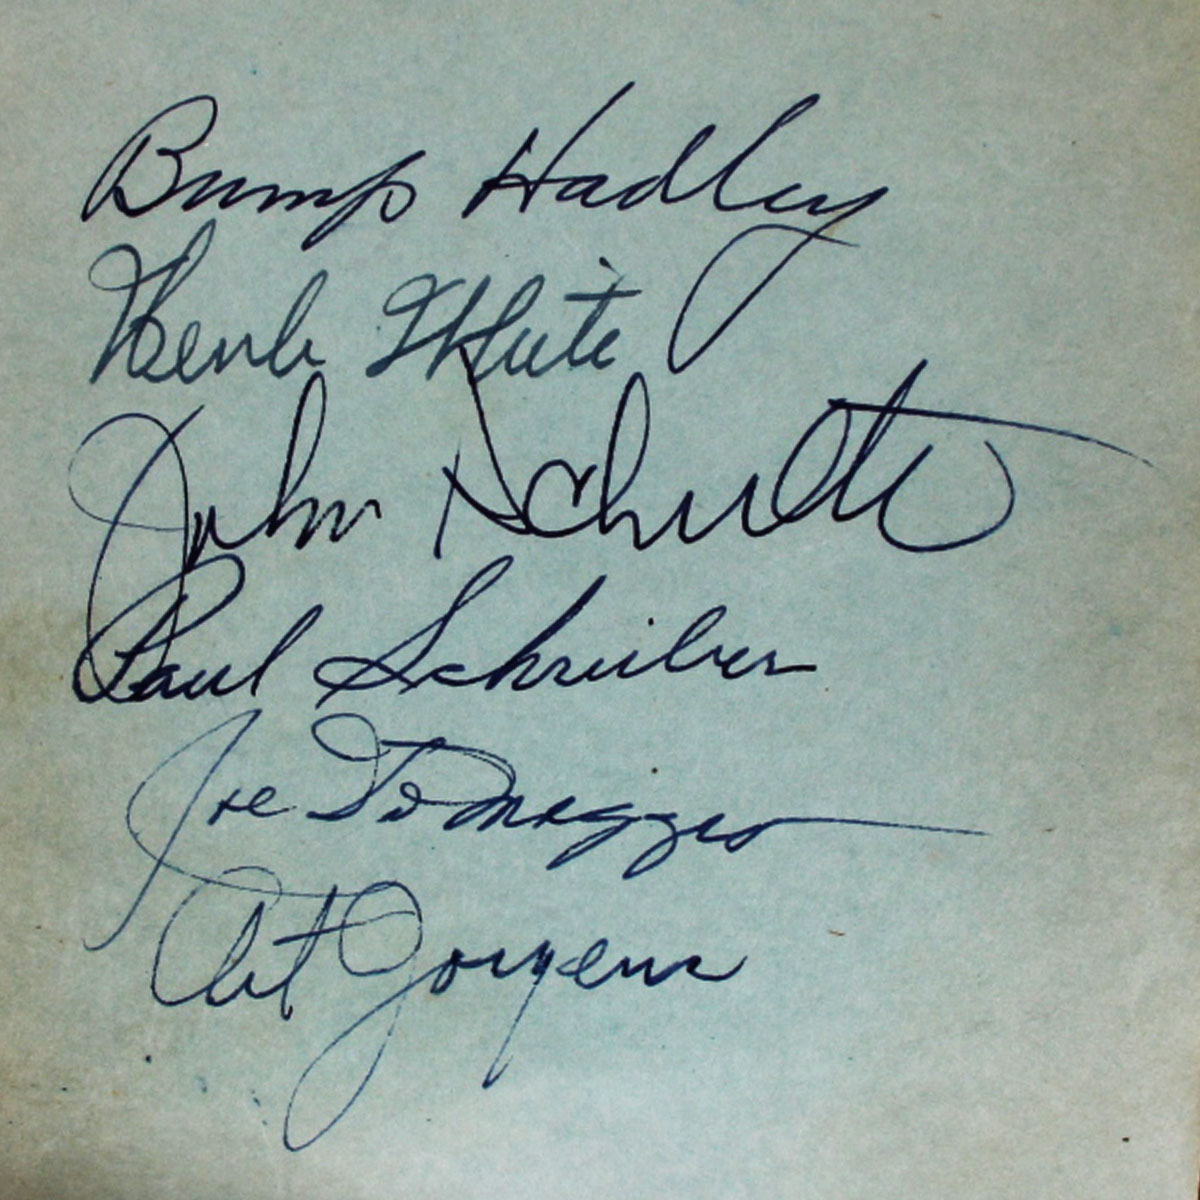 Bump Hadley
Herb White
John Schulte
Paul Schreiber
Joe DiMaggio
Art Jorgens